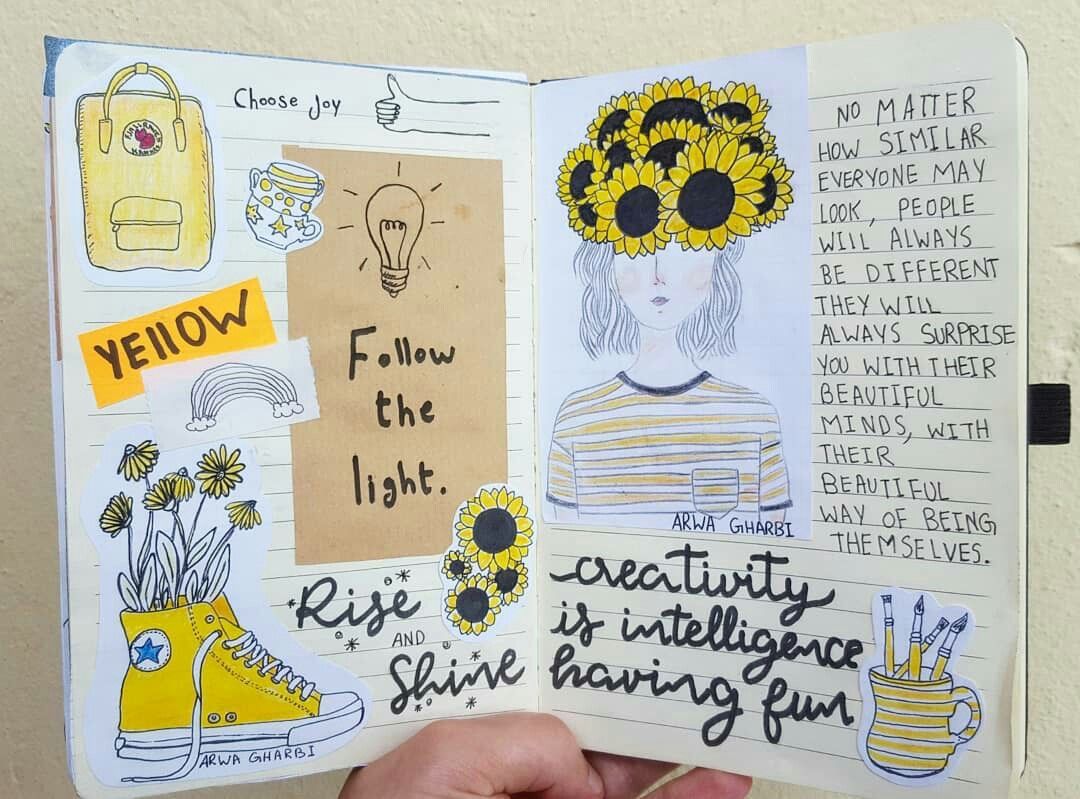 Choose Joy
YEllOW
Follow
the
light.
Rise
AND
Shine
ARWA GHARBI
NO MATTER
HOW SIMILAR
EVERYONE MAY
LOOK, PEOPLE
WIll ALWAYS
BE DIFFERENT
THEY WILL
ALWAYS SURPRISE
YOU WITH THEIR
BEAUTIFUL
MINDS, WITH
THEIR
BEAUTIFUL
WAY OF BEING
THEMSELVES.
ARWA GHARBI
creativity
is intelligence
having fun